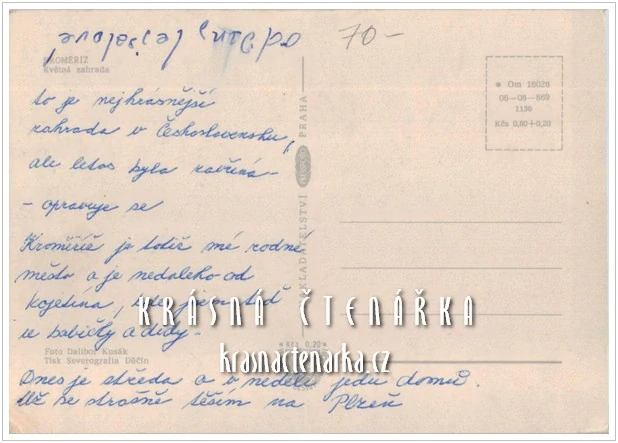 70-
KROMĚŘÍŽ
Květná zahrada
to je nejkrásnější
zahrada v Československu,
ale letos byla zavřená -
- opravuje se
Kroměříž je totiž mé rodné
město a je nedaleko od
Kojetína, kde jsem teď
u babičky a dědy -
Dnes je středa a v neděli jedu domů.
Už se strašně těším na Plzeň
Foto Dalibor Kusák
Tisk Severografia Děčín
NAKLADATELSTVÍ
PRAHA
* Kčs 0,20 *
* Om 16028
05-08-869
1136
Kčs 0,80+0,20
KRÁSNÁ ČTENÁŘKA
krasnactenarka.cz